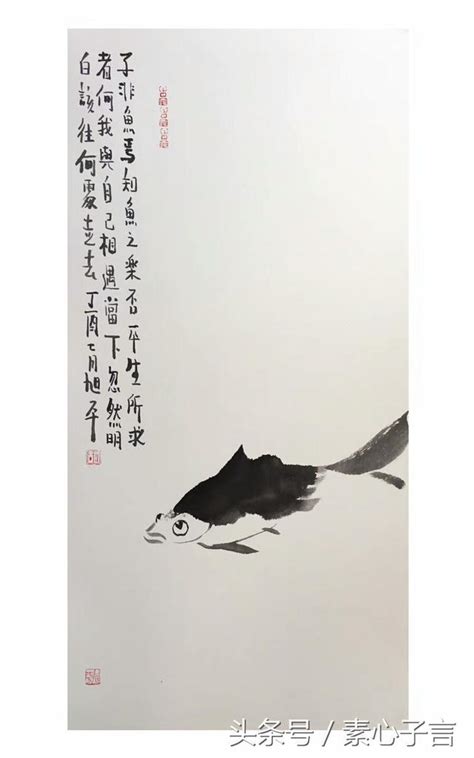 子非魚焉知魚之樂否平生所求
者何我與自己相遇當下忽然明
白該往何處走去丁酉七月旭平
头条号 / 素心子言